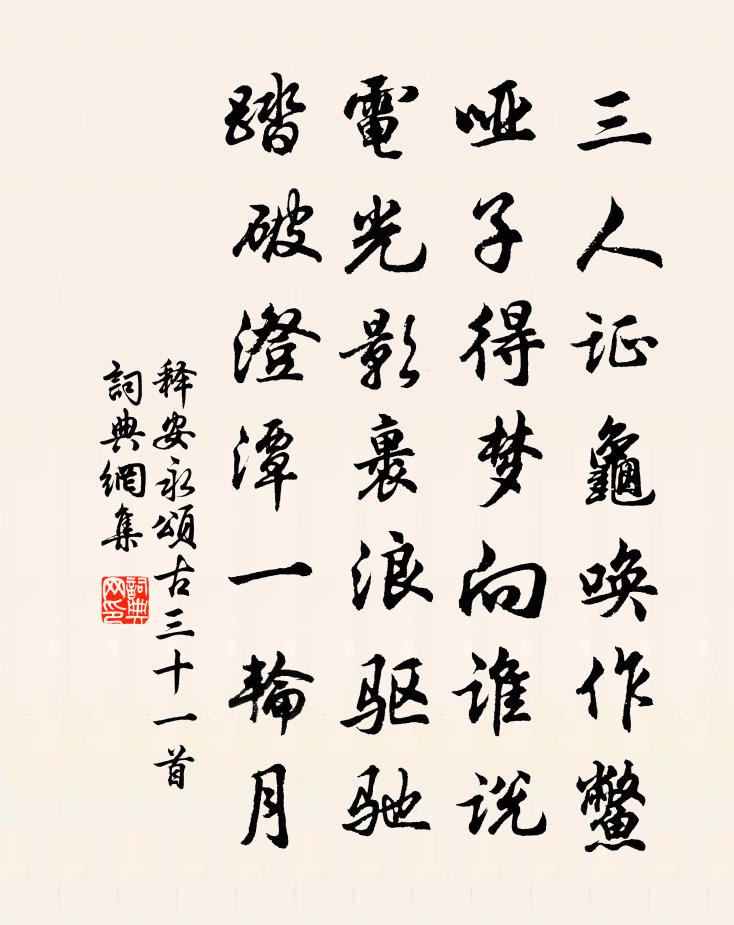 三人证龜唤作鱉
哑子得梦向谁说
電光影裹浪驱驰
踏破澄潭一輪月
释安永頌古三十一首
詞典網集
詞典网印